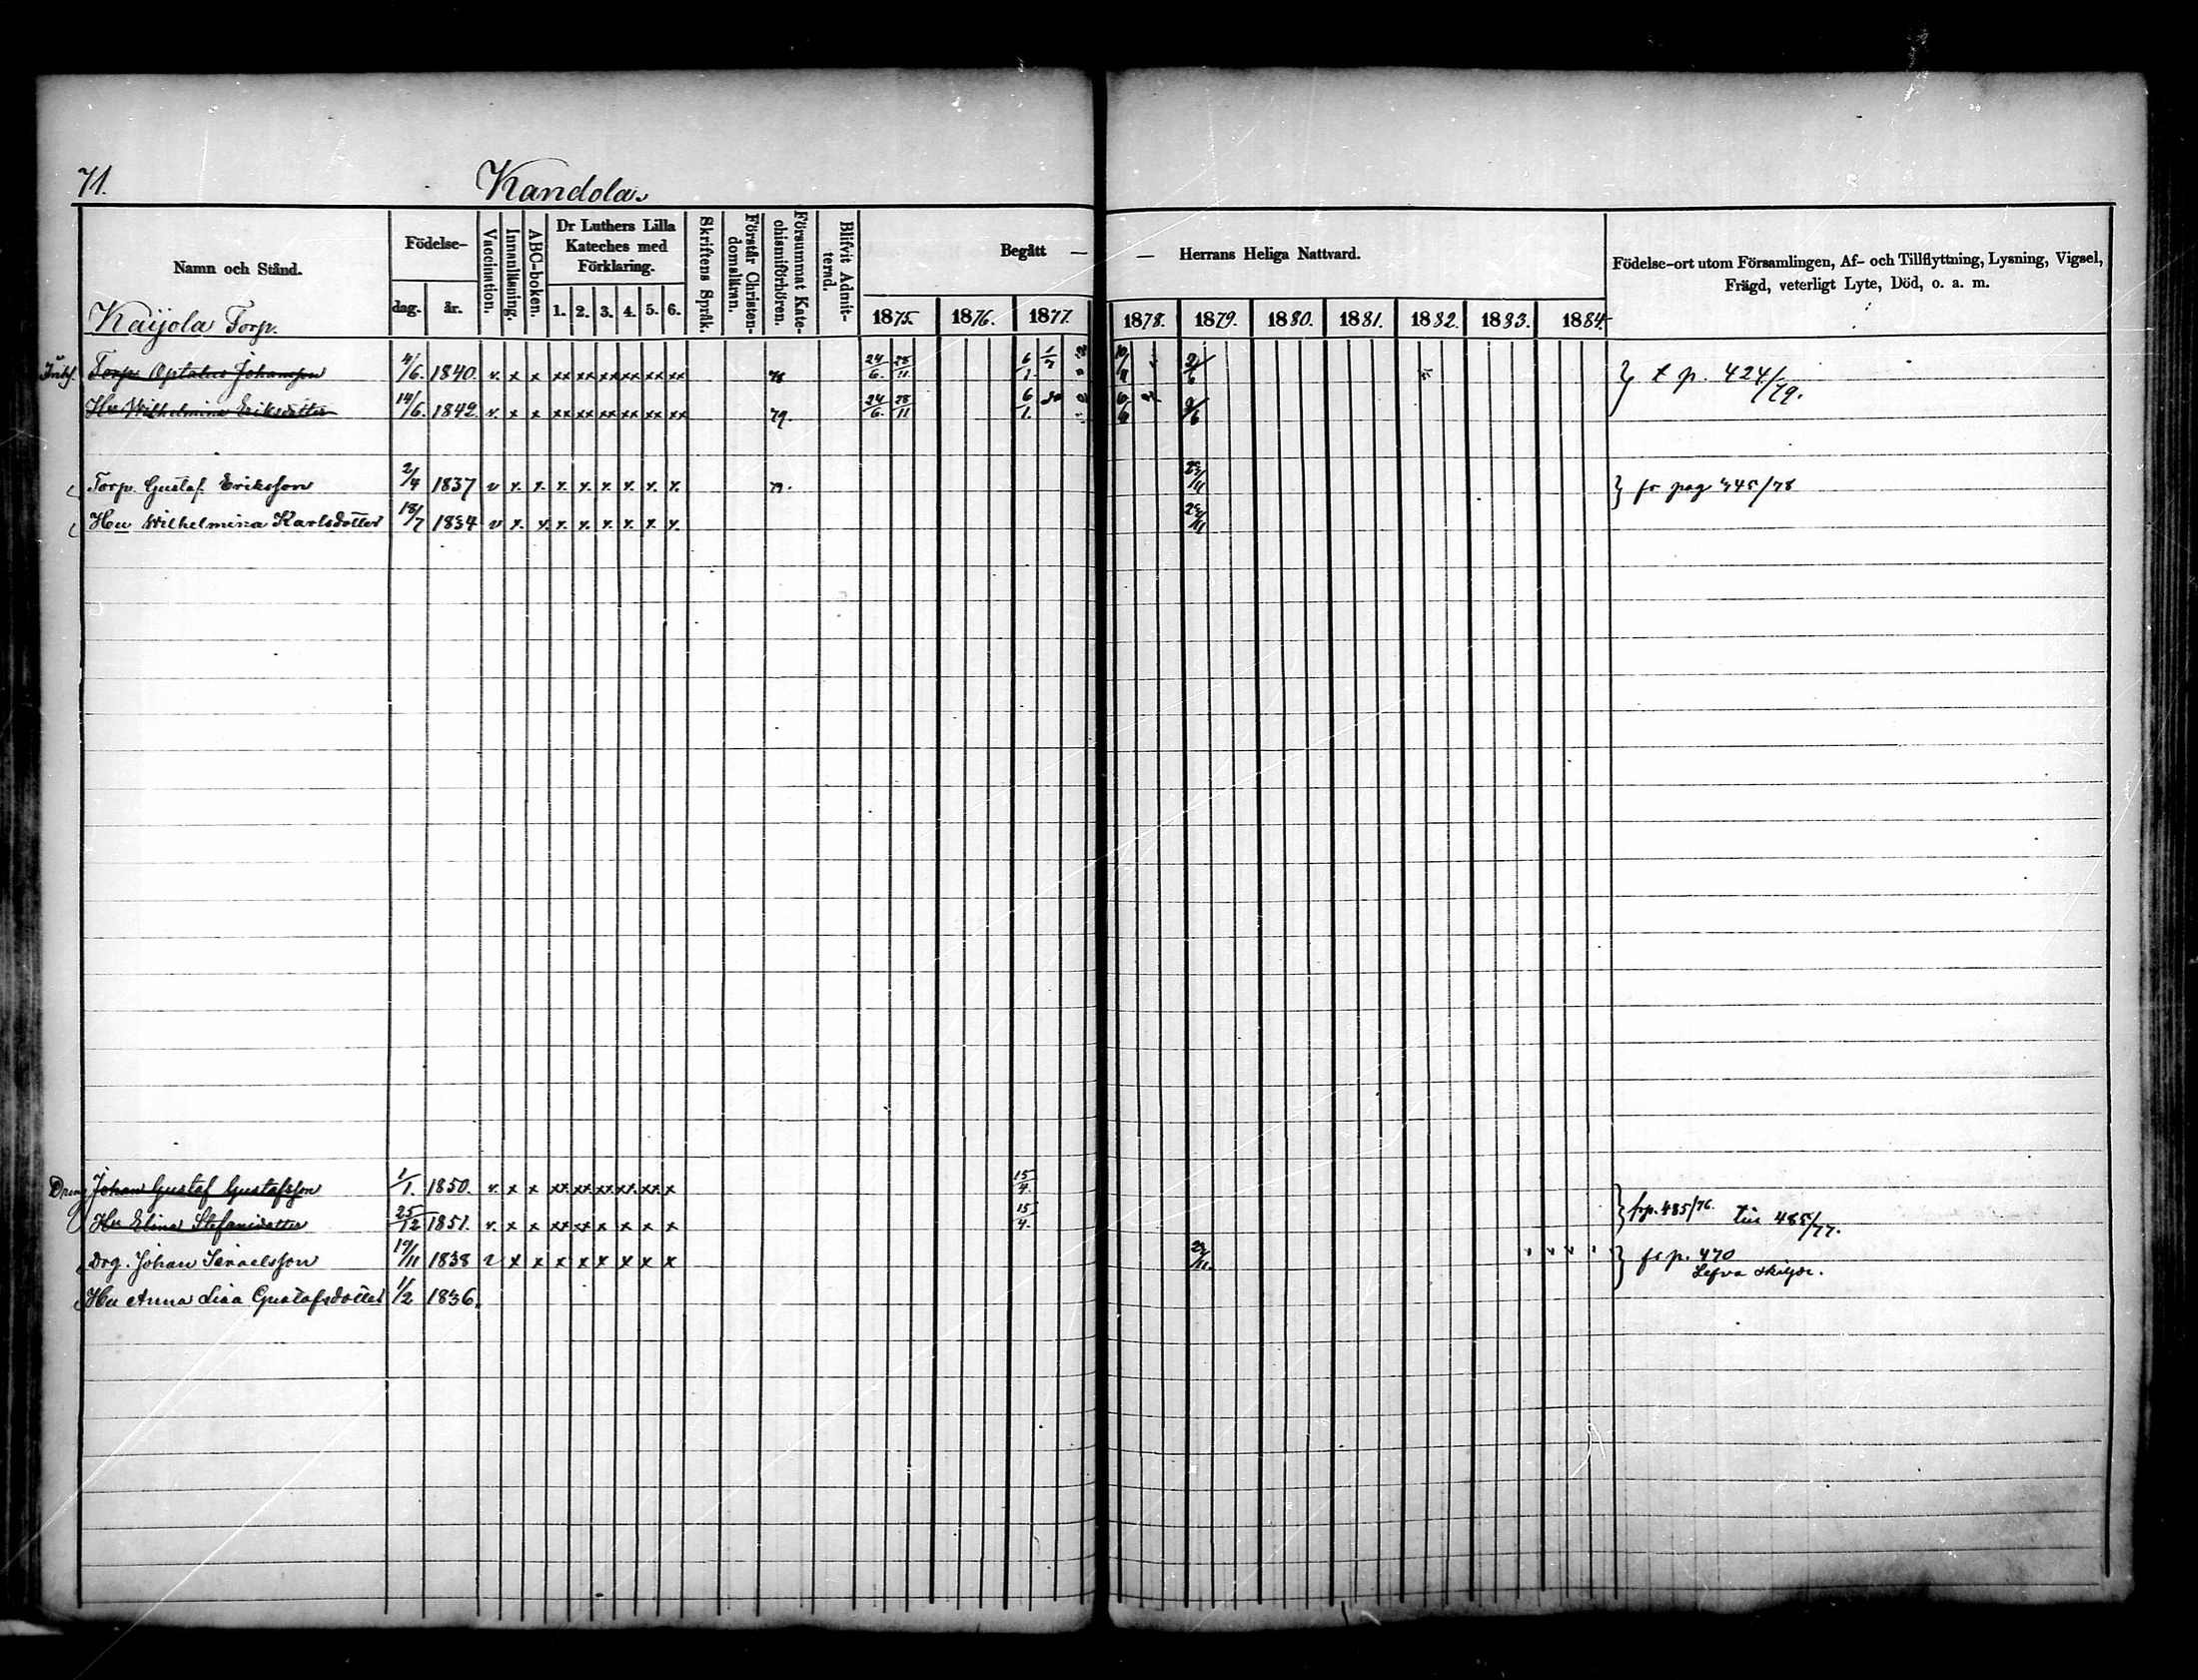 71.
Kandola.
Namn och Stånd.
Födelse-
dag. år.
Vaccination.
Innanläsning.
ABC-boken.
Dr Luthers Lilla Kateches med Förklaring.
1. 2. 3. 4. 5. 6.
Skriftens Språk.
Förstår Christen-domsläran.
Försummat Kate-chismiförhören.
Blifvit Admit-terad.
Begått — — Herrans Heliga Nattvard.
1875. 1876. 1877. 1878. 1879. 1880. 1881. 1882. 1883. 1884.
Födelse-ort utom Församlingen, Af- och Tillflyttning, Lysning, Vigsel,
Frägd, veterligt Lyte, Död, o. a. m.
Kaijola Torp.
Torp. Optatus Johansson 4/6. 1840. v. x x xx xx xx xx xx xx 78 24/6. 28/11 6/1 1/7 2/6 } t p. 424/79.
Hu Wilhelmina Eriksdotter 14/6. 1842. v. x x xx xx xx xx xx xx 79. 24/6. 28/11 6/1. 2/6
Torp. Gustaf Eriksson 2/4 1837 v x. x. x. x. x. x. x. x. 79. 23/11 } fr pag 445/78
Hu Wilhelmina Karlsdotter 18/7 1834 v x. x. x. x. x. x. x. x. 23/11
Dreng Johan Gustaf Gustafsson 1/1. 1850. v. x x xx xx xx xx xx x 15/4. } frp. 485/76. till 485/77.
Hu Elina Stefansdotter 25/12 1851. v. x x xx xx x x x x 15/4.
Drg. Johan Israelsson 19/11 1838 v x x x x x x x x 23/11. } fr p. 470
Lefva skiljde.
Hu Anna Lisa Gustafsdotter 1/2 1836.